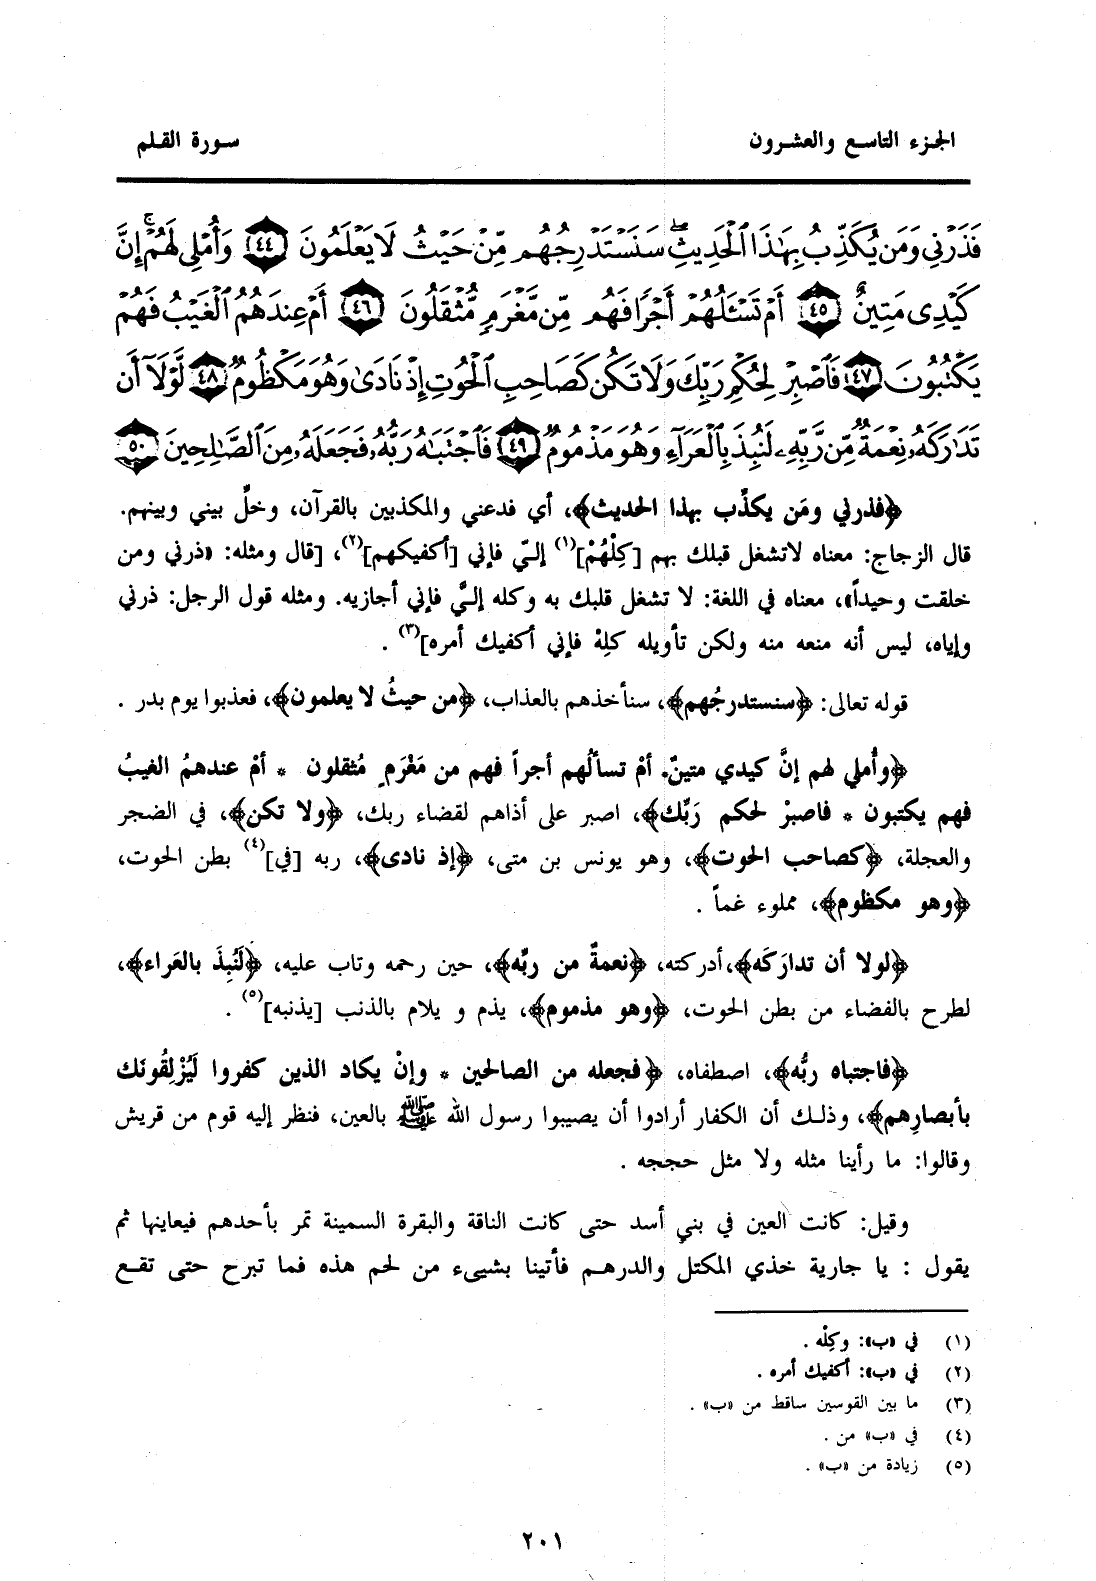 الجزء التاسع والعشرون
سورة القلم
فَذَرْنِي وَمَن يُكَذِّبُ بِهَٰذَا الْحَدِيثِ ۖ سَنَسْتَدْرِجُهُم مِّنْ حَيْثُ لَا يَعْلَمُونَ ٤٤ وَأُمْلِي لَهُمْ ۚ إِنَّ
كَيْدِي مَتِينٌ ٤٥ أَمْ تَسْـَٔلُهُمْ أَجْرًا فَهُم مِّن مَّغْرَمٍ مُّثْقَلُونَ ٤٦ أَمْ عِندَهُمُ الْغَيْبُ فَهُمْ
يَكْتُبُونَ ٤٧ فَاصْبِرْ لِحُكْمِ رَبِّكَ وَلَا تَكُن كَصَاحِبِ الْحُوتِ إِذْ نَادَىٰ وَهُوَ مَكْظُومٌ ٤٨ لَّوْلَآ أَن
تَدَٰرَكَهُۥ نِعْمَةٌ مِّن رَّبِّهِۦ لَنُبِذَ بِالْعَرَآءِ وَهُوَ مَذْمُومٌ ٤٩ فَاجْتَبَٰهُ رَبُّهُۥ فَجَعَلَهُۥ مِنَ الصَّٰلِحِينَ ٥٠
﴿فذرني ومَن يكذِّب بهذا الحديث﴾، أي فدعني والمكذبين بالقرآن، وخلِّ بيني وبينهم.
قال الزجاج: معناه لاتشغل قبلك بهم [كِلْهُمْ](١) إليّ فإني [أكفيكهم](٢)، [قال ومثله: «ذرني ومن
خلقت وحيداً»، معناه في اللغة: لا تشغل قلبك به وكله إليَّ فإني أجازيه. ومثله قول الرجل: ذرني
وإياه، ليس أنه منعه منه ولكن تأويله كلِهْ فإني أكفيك أمره](٣) .
قوله تعالى: ﴿سنستدرجُهم﴾، سنأخذهم بالعذاب، ﴿من حيثُ لا يعلمون﴾، فعذبوا يوم بدر .
﴿وأُملي لهم إنَّ كيدي متينٌ. أمْ تسألُهم أجراً فهم من مَغْرَمٍ مُثقلون * أمْ عندهمُ الغيبُ
فهم يكتبون * فاصبرْ لحكم رَبِّك﴾، اصبر على أذاهم لقضاء ربك، ﴿ولا تكن﴾، في الضجر
والعجلة، ﴿كصاحب الحوت﴾، وهو يونس بن متى، ﴿إذ نادى﴾، ربه [في](٤) بطن الحوت،
﴿وهو مكظوم﴾، مملوء غماً .
﴿لولا أن تدارَكَه﴾،أدركته، ﴿نعمةٌ من ربِّه﴾، حين رحمه وتاب عليه، ﴿لَنُبِذَ بالعَراء﴾،
لطرح بالفضاء من بطن الحوت، ﴿وهو مذموم﴾، يذم و يلام بالذنب [يذنبه](٥) .
﴿فاجتباه ربُّه﴾، اصطفاه، ﴿فجعله من الصالحين * وإنْ يكاد الذين كفروا لَيُزْلِقُونَك
بأبصارِهم﴾، وذلـك أن الكفار أرادوا أن يصيبوا رسول الله ﷺ بالعين، فنظر إليه قوم من قريش
وقالوا: ما رأينا مثله ولا مثل حججه .
وقيل: كانت العين في بني أسد حتى كانت الناقة والبقرة السمينة تمر بأحدهم فيعاينها ثم
يقول : يا جارية خذي المكتل والدرهـم فأتينا بشيىء من لحم هذه فما تبرح حتى تقـع
(١) في «ب»: وكِلْه .
(٢) في «ب»: أكفيك أمره .
(٣) ما بين القوسين ساقط من «ب» .
(٤) في «ب» من .
(٥) زيادة من «ب» .
٢٠١